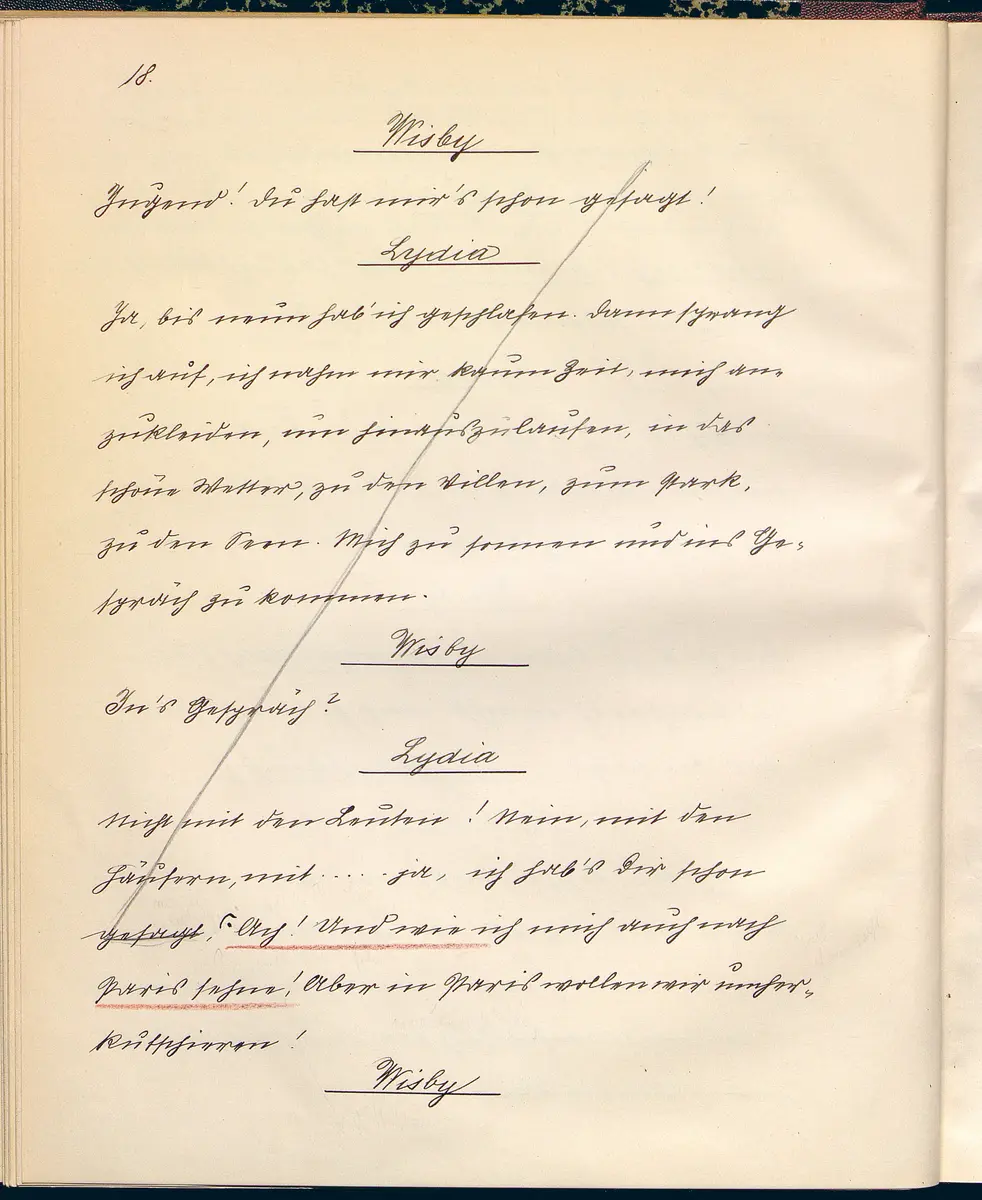 18.
Wisby
Jugend! Du hast mir's schon gesagt!
Lydia
Ja, bis neun hab' ich geschlafen. Dann sprang
ich auf, ich nahm mir kaum Zeit, mich an-
zukleiden, um hinauszulaufen, in das
schöne Wetter, zu den Villen, zum Park,
zu den Seen. Mich zu sonnen und ins Ge-
spräch zu kommen.
Wisby
In's Gespräch?
Lydia
Nicht mit den Leuten! Nein, mit den
Häusern, mit .... ja, ich hab's Dir schon
gesagt. Ach! Und wie ich mich auch nach
Paris sehne! Aber in Paris wollen wir umher-
kutschieren!
Wisby